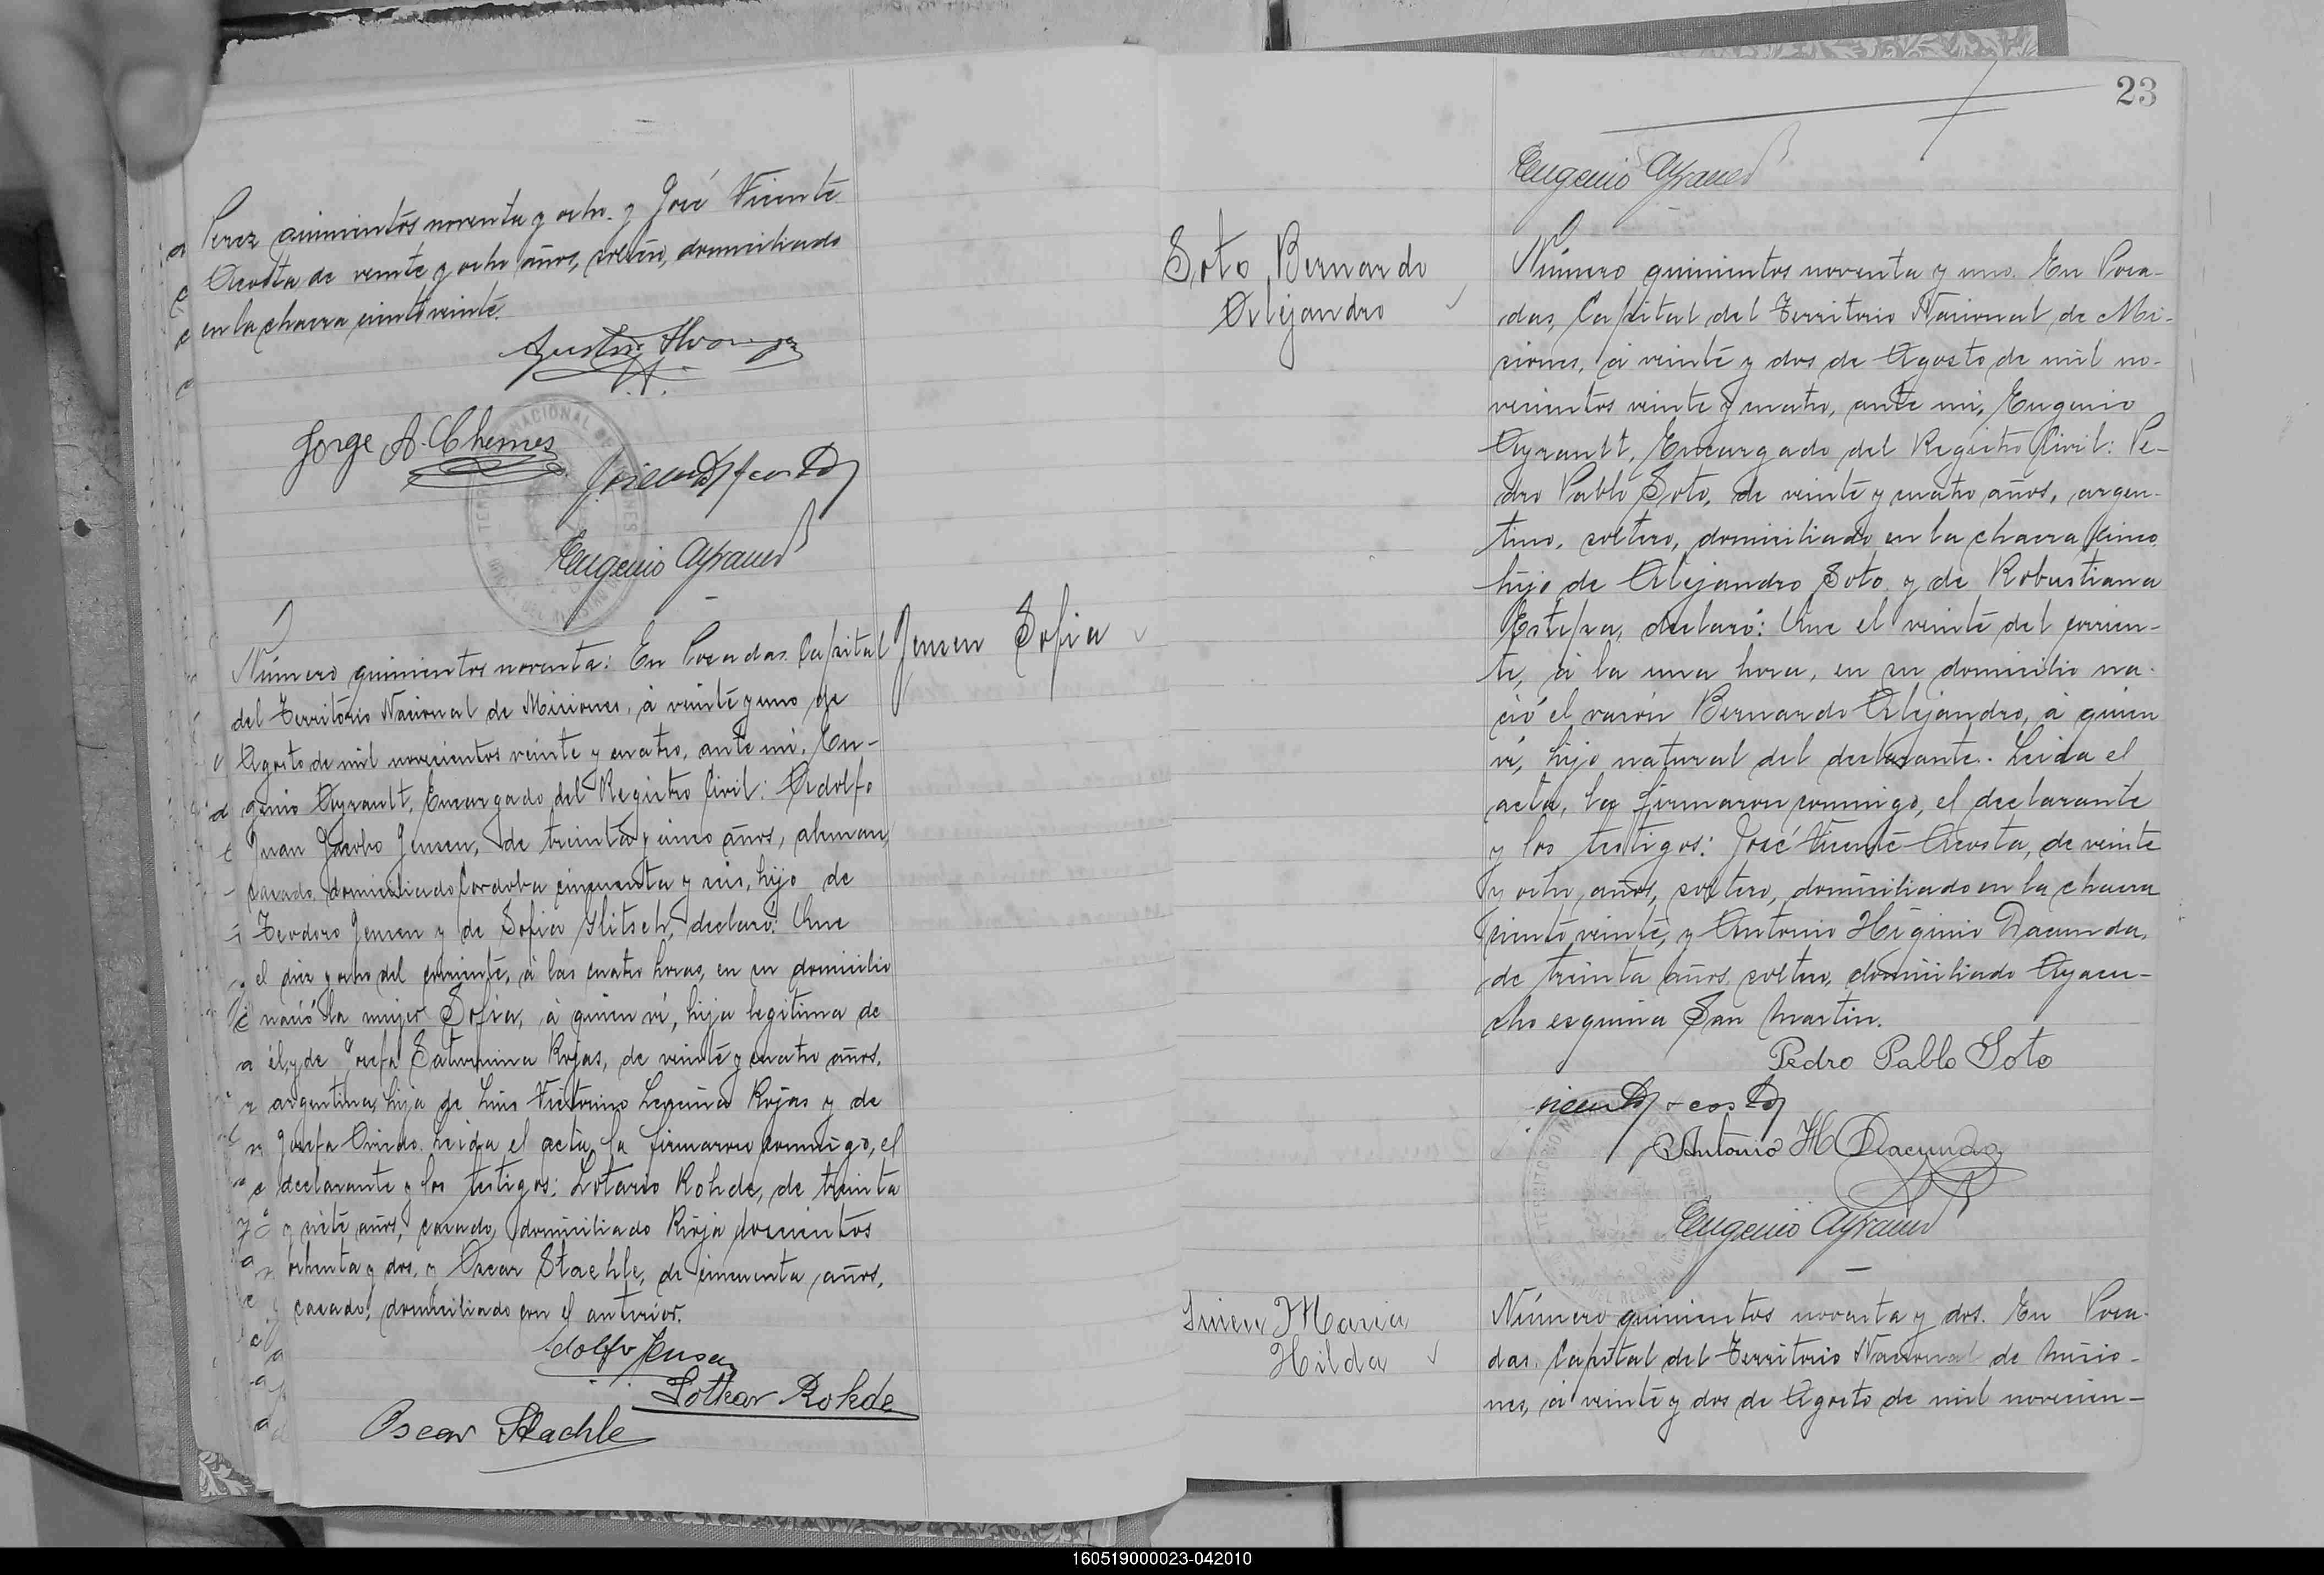 Perez quinientos noventa y ocho. y José Vicente
Acosta de veinte y ocho años, soltero, domiciliado
en la chacra ciento veinte.
Jorge A. Chemes
Eugenio Ayrault
Número quinientos noventa: En Posadas. Capital
Jensen Sofia
del Territorio Nacional de Misiones, á veinte y uno de
Agosto de mil novecientos veinte y cuatro, ante mi, Eu-
genio Ayrault, Encargado del Registro Civil: Adolfo
Juan Jacobo Jensen, de treinta y cinco años, aleman,
casado, domiciliado Cordoba cincuenta y seis, hijo de
Teodoro Jensen y de Sofia Glitsch, declaró: Que
el diez y ocho del corriente, á las cuatro horas, en su domicilio
nació la mujer Sofia, á quien ví, hija legitima de
él, y de Josefa Saturnina Rojas, de veinte y cuatro años,
argentina, hija de Luis Victorino Rojas y de
Josefa Leida el acta, la firmaron conmigo, el
declarante y los testigos: Lotario Rohde, de treinta
y siete años, casado, domiciliado Rioja doscientos
ochenta y dos, y Oscar Staehle, de cincuenta años,
casado, domiciliado con el anterior.
Adolfo Jensen
Lothar Rohde
Oscar Staehle
23
Eugenio Ayrault
Soto Bernardo
Alejandro
Número quinientos noventa y uno. En Posa-
das, Capital del Territorio Nacional de Mi-
siones, á veinte y dos de Agosto de mil no-
vecientos veinte y cuatro, ante mi, Eugenio
Ayrault, Encargado del Registro Civil: Pe-
dro Pablo Soto, de veinte y cuatro años, argen-
tino, soltero, domiciliado en la chacra cinco
hijo de Alejandro Soto y de Robustiana
Estepa, declaró: Que el veinte del corrien-
te, á la una hora, en su domicilio na-
ció el varón Bernardo Alejandro, á quien
ví, hijo natural del declarante. Leida el
acta, la firmaron conmigo, el declarante
y los testigos: José Vicente Acosta, de veinte
y ocho años, soltero, domiciliado en la chacra
ciento veinte, y Antonio Higinio Dacunda,
de treinta años, soltero, domiciliado Ayacu-
cho esquina San Martin.
Pedro Pablo Soto
Antonio H Dacunda
Eugenio Ayrault
Maria
Hilda
Número quinientos noventa y dos. En Posa-
das, Capital del Territorio Nacional de Misio-
nes, á veinte y dos de Agosto de mil novecien-
160519000023-042010